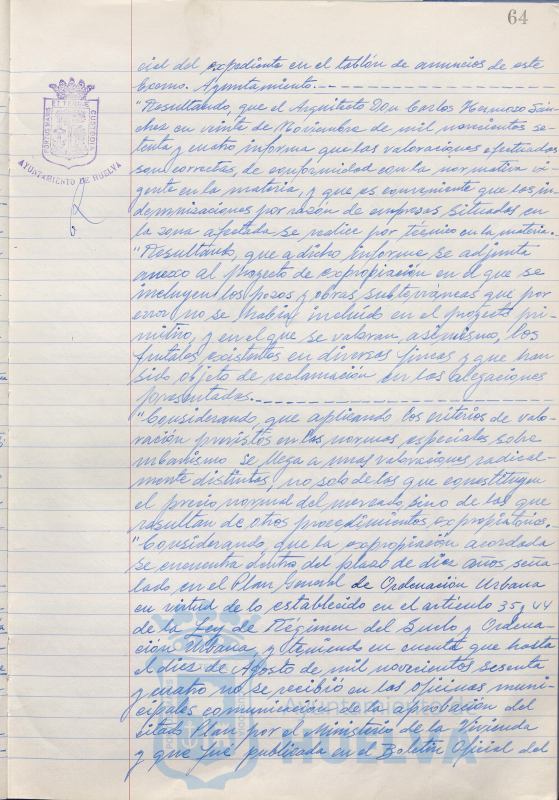 64
cial del expediente en el tablón de anuncios de este
Excmo. Ayuntamiento.
"Resultando, que el Arquitecto Don Carlos Hermoso Sán-
chez en veinte de Noviembre de mil novecientos se-
tenta y cuatro informa que las valoraciones efectuadas
son correctas, de conformidad con la normativa vi-
gente en la materia, y que es conveniente que las in-
demnizaciones por razón de empresas situadas en
la zona afectada se realice por técnico en la materia.
"Resultando, que a dicho informe se adjunta
anexo al Proyecto de expropiación en el que se
incluyen los pozos y obras subterráneas que por
error no se había incluido en el proyecto pri-
mitivo, y en el que se valoran, asimismo, los
frutales existentes en diversas fincas y que han
sido objeto de reclamación en las alegaciones
presentadas.
"Considerando, que aplicando los criterios de valo-
ración previstos en las normas especiales sobre
urbanismo se llega a unas valoraciones radical-
mente distintas, no solo de las que constituyen
el precio normal del mercado, sino de las que
resultan de otros procedimientos expropiatorios.
"Considerando, que la expropiación acordada
se encuentra dentro del plazo de diez años seña-
lado en el Plan General de Ordenación Urbana
en virtud de lo establecido en el artículo 35 y 44
de la Ley de Régimen del Suelo y Ordena-
ción Urbana y teniendo en cuenta que hasta
el diez de Agosto de mil novecientos sesenta
y cuatro no se recibió en las oficinas muni-
cipales comunicación de la aprobación del
citado Plan por el Ministerio de la Vivienda
y que fué publicada en el Boletín Oficial del
AYUNTAMIENTO DE HUELVA
HUELVA